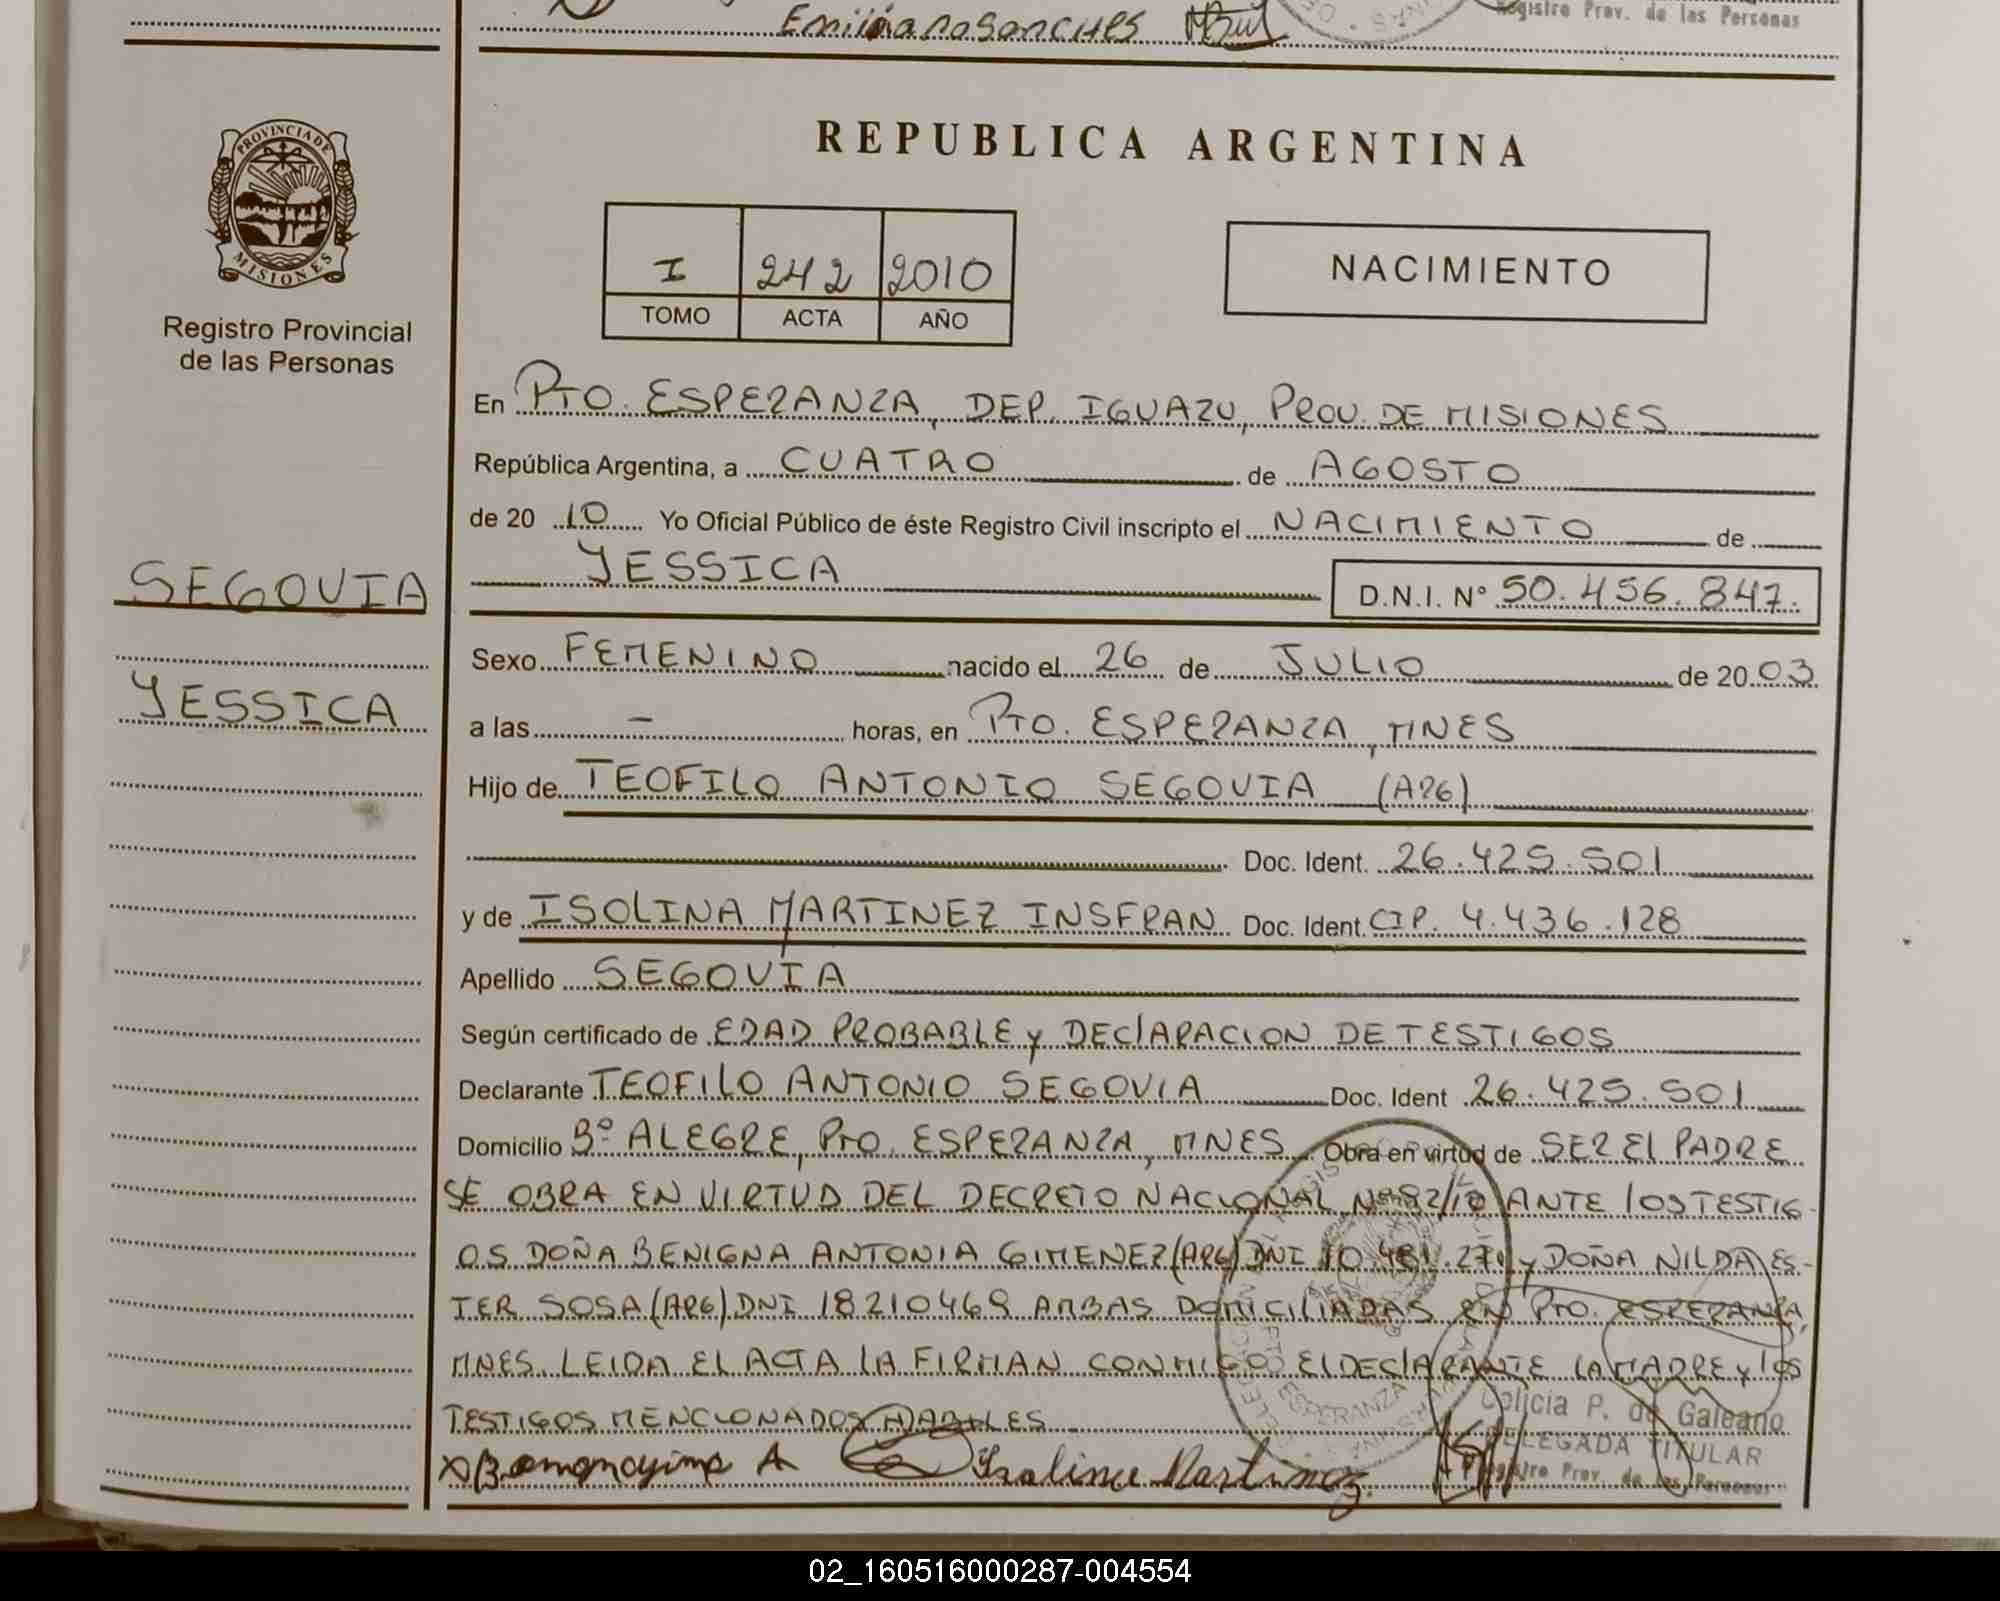 Emiliano Sanches
Registro Prov. de las Personas
PROVINCIA DE
MISIONES
Registro Provincial
de las Personas
REPUBLICA ARGENTINA
I 242 2010
TOMO ACTA AÑO
NACIMIENTO
En PTO. ESPERANZA, DEP. IGUAZU, PROV. DE MISIONES
República Argentina, a CUATRO de AGOSTO
de 20 10 Yo Oficial Público de éste Registro Civil inscripto el NACIMIENTO de
YESSICA D.N.I. N° 50.456.847.
SEGOVIA
YESSICA
Sexo FEMENINO nacido el 26 de JULIO de 20 03
a las - horas, en PTO. ESPERANZA, MNES
Hijo de TEOFILO ANTONIO SEGOVIA (ARG)
Doc. Ident. 26.425.501
y de ISOLINA MARTINEZ INSFRAN Doc. Ident. CIP. 4.436.128
Apellido SEGOVIA
Según certificado de EDAD PROBABLE y DEClARACION DE TESTIGOS
Declarante TEOFILO ANTONIO SEGOVIA Doc. Ident 26.425.501
Domicilio Bº ALEGRE, PTO. ESPERANZA, MNES Obra en virtud de SER El PADRE
SE OBRA EN VIRTUD DEL DECRETO NACIONAL Nº 92/10 ANTE lOS TESTIG-
OS DOÑA BENIGNA ANTONIA GIMENEZ (ARG) DNI 10.481.271 y DOÑA NILDA ES-
TER SOSA (ARG) DNI 18210469 AMBAS DOMICILIADAS EN PTO. ESPERANZA,
MNES. LEIDA EL ACTA lA FIRMAN CONMIGO El DEClARANTE LA MADRE y lOS
TESTIGOS MENCIONADOS HABILES
A Isolina Martinez
PTO ESPERANZA
Delicia P. de Galeano
DELEGADA TITULAR
Registro Prov. de las Personas
02_160516000287-004554